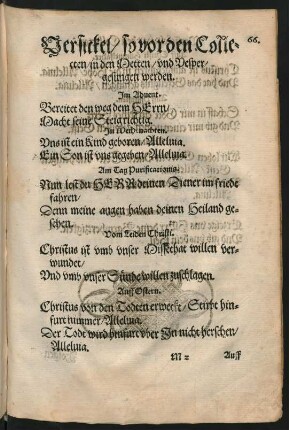 66.
Versickel / so vor den Colle-
cten in den Metten / vnd Vesper
gesungen werden.
Im Advent.
Bereitet den weg dem HErrn /
Macht seine Steig richtig.
Im Weihnachten.
Vns ist ein Kind geboren / Alleluia.
Ein Son ist vns gegeben / Alleluia.
Am Tag Purificationis.
Nun lest du HERR deinen Diener im friede
fahren /
Denn meine augen haben deinen Heiland ge-
sehen.
Vom Leiden Christi.
Christus ist vmb vnser Missethat willen ver-
wundet /
Vnd vmb vnser Sünde willen zuschlagen.
Auff Ostern.
Christus von den Todten erweckt / Stirbt hin-
furt nimmer / Alleluia.
Der Tod wird hinfurt vber Jn nicht herschen /
Alleluia.
M 2 Auff